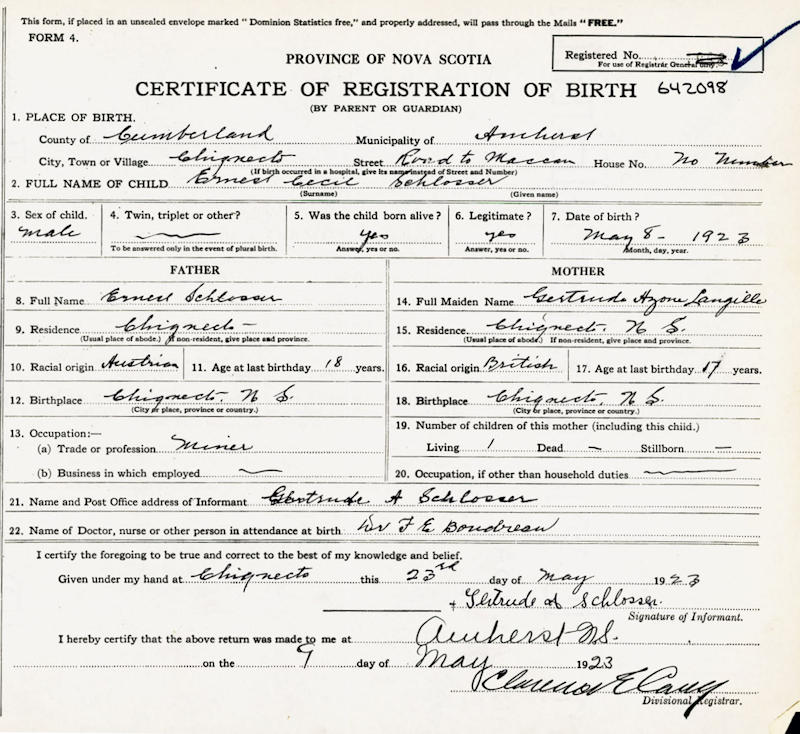 This form, if placed in an unsealed envelope marked "Dominion Statistics free," and properly addressed, will pass through the Mails "FREE."
FORM 4.
PROVINCE OF NOVA SCOTIA
Registered No.
For use of Registrar General only.
CERTIFICATE OF REGISTRATION OF BIRTH 642098
(BY PARENT OR GUARDIAN)
1. PLACE OF BIRTH.
County of Cumberland Municipality of Amherst
City, Town or Village Chignecto Street Road to Maccan House No. No Number
(If birth occurred in a hospital, give its name instead of Street and Number)
2. FULL NAME OF CHILD Ernest Cecil Schlosser
(Surname) (Given name)
3. Sex of child. 4. Twin, triplet or other? 5. Was the child born alive? 6. Legitimate? 7. Date of birth?
male yes yes May 8 - 1923
To be answered only in the event of plural birth. Answer, yes or no. Answer, yes or no. Month, day, year.
FATHER MOTHER
8. Full Name Ernest Schlosser 14. Full Maiden Name Gertrude Azone Langille
9. Residence Chignecto - 15. Residence. Chignecto, N S.
(Usual place of abode.) If non-resident, give place and province. (Usual place of abode.) If non-resident, give place and province.
10. Racial origin Austrian 11. Age at last birthday 18 years. 16. Racial origin British 17. Age at last birthday 17 years.
12. Birthplace Chignecto, N S. 18. Birthplace Chignecto, N S.
(City or place, province or country.) (City or place, province or country.)
13. Occupation:— 19. Number of children of this mother (including this child.)
(a) Trade or profession Miner Living 1 Dead — Stillborn —
(b) Business in which employed 20. Occupation, if other than household duties
21. Name and Post Office address of Informant Gertrude A Schlosser
22. Name of Doctor, nurse or other person in attendance at birth Dr F E Boudreau
I certify the foregoing to be true and correct to the best of my knowledge and belief.
Given under my hand at Chignecto this 23rd day of May 1923
Gertrude A Schlosser.
Signature of Informant.
I hereby certify that the above return was made to me at Amherst N.S.
on the 9 day of May 1923
Clarence E
Divisional Registrar.